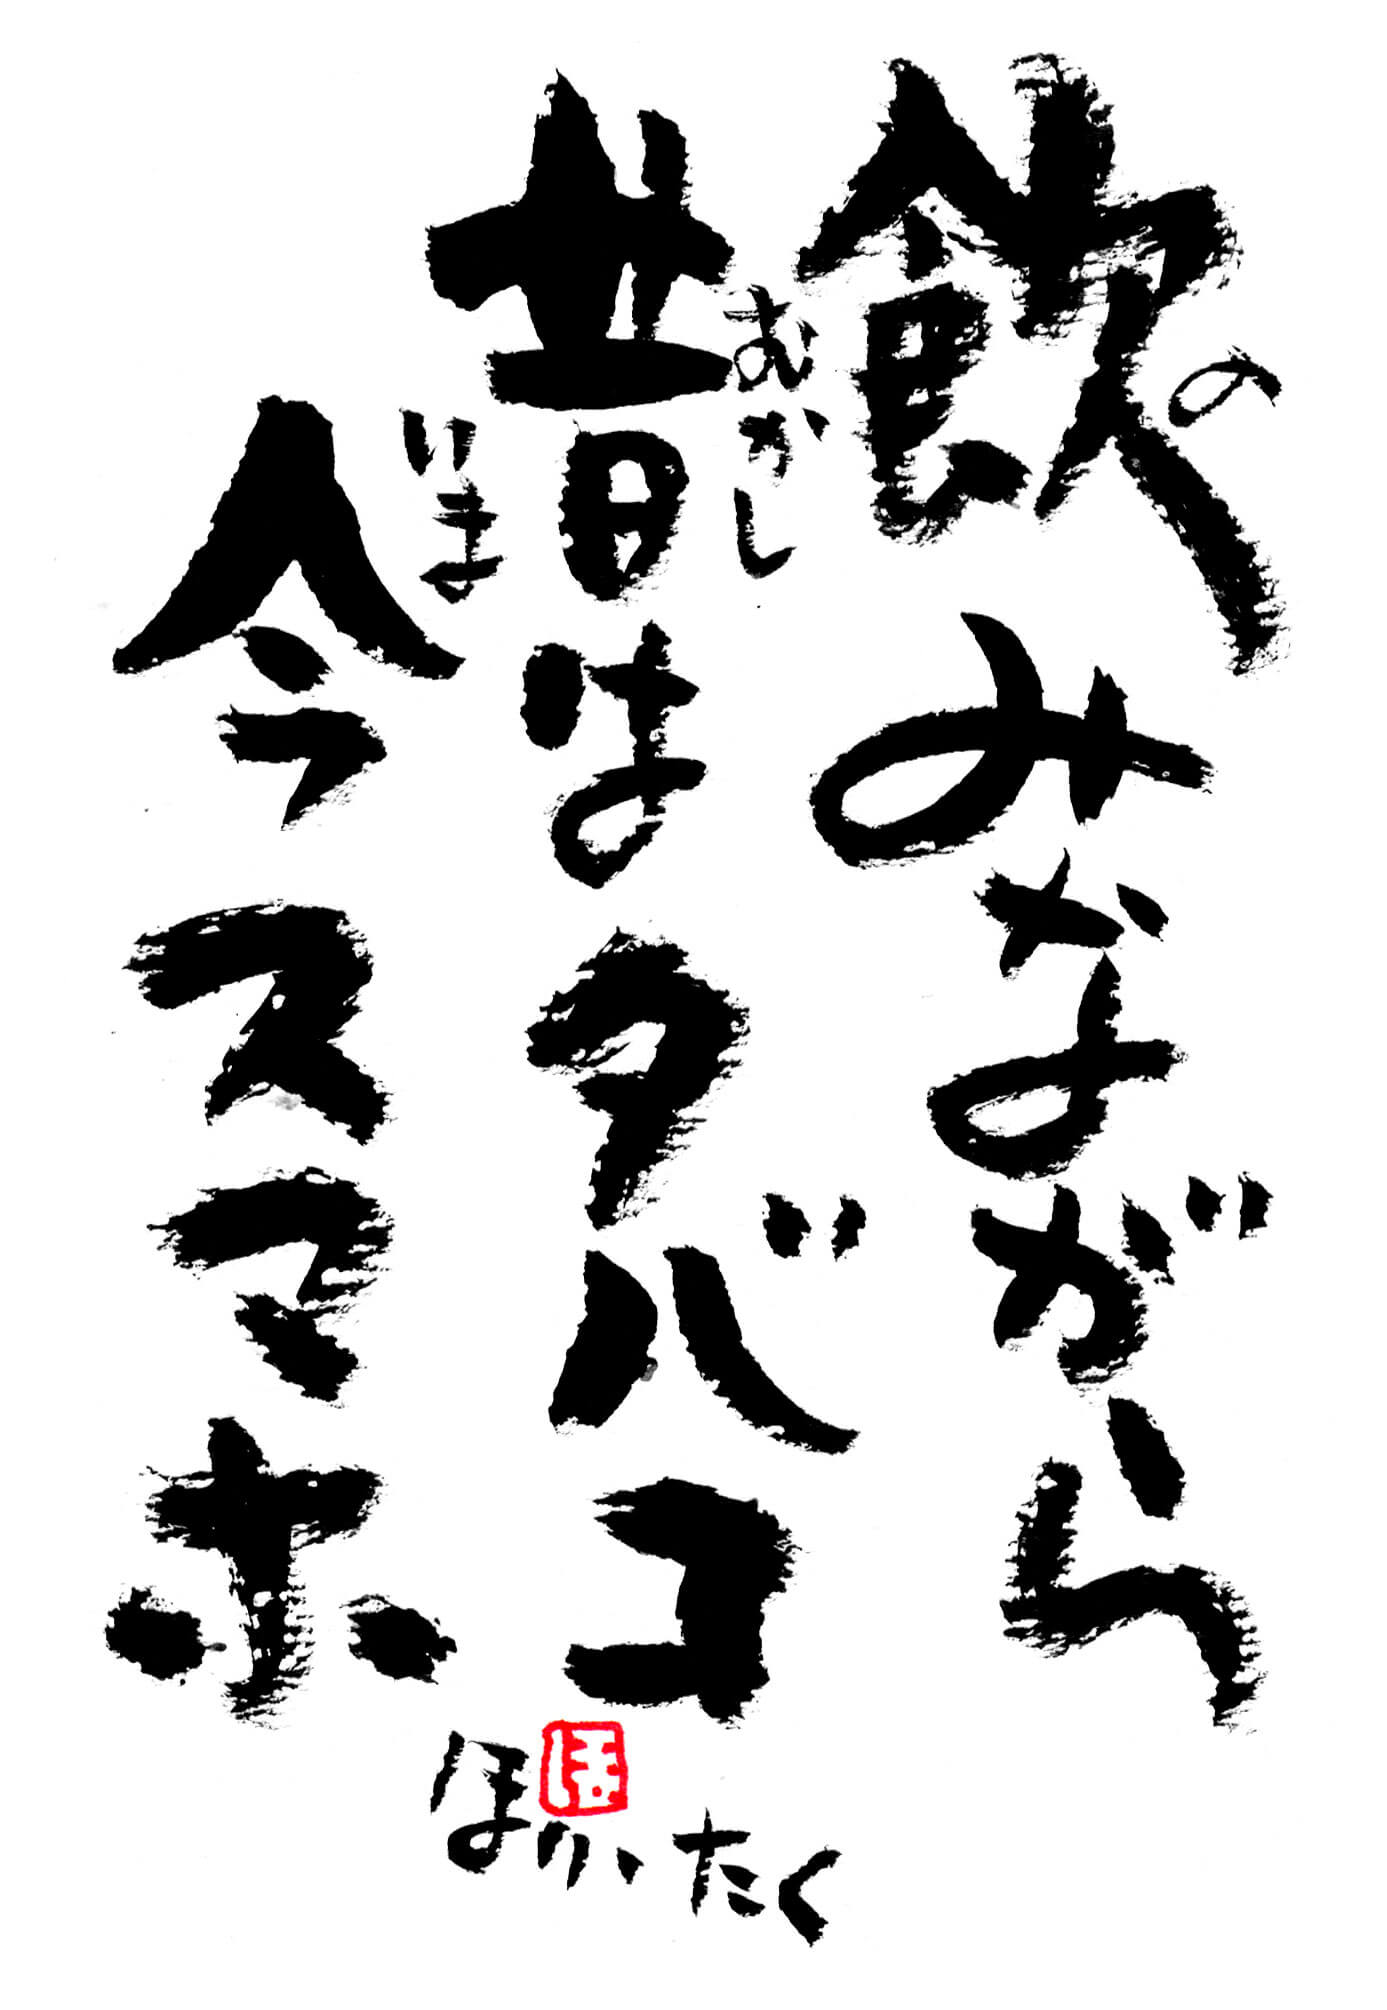 の
飲みながら
むかし
昔はタバコ
いま
今スマホ
ほ